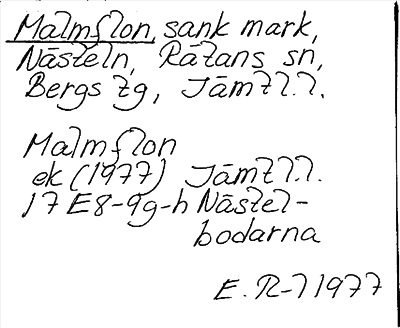 Malmflon, sank mark,
Nästeln, Rätans sn,
Bergs tg, Jämtl.l.
Malmflon
ek (1977) Jämtl.l.
17 E8-9g-h Nästel-
bodarna
E. R-l 1977